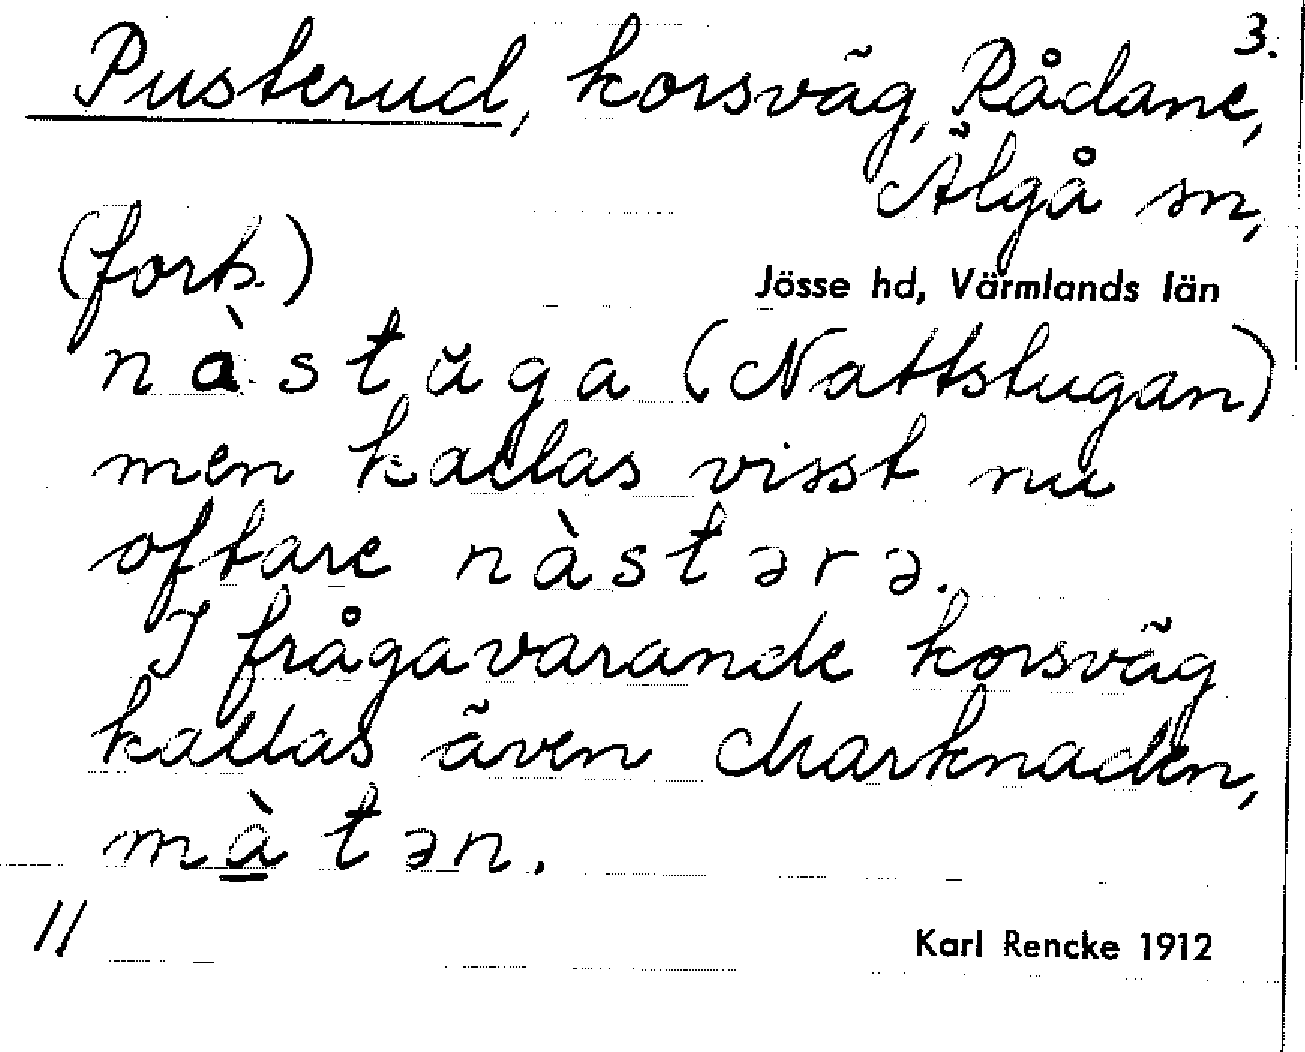 3.
Pusterud, korsväg, Rådane,
Älgå sn,
(forts.)
Jösse hd, Värmlands län
nàstŭga (Nattstugan)
men kallas visst nu
oftare nàstərə.
I frågavarande korsväg
kallas även Marknaden,
màtən.
//
Karl Rencke 1912